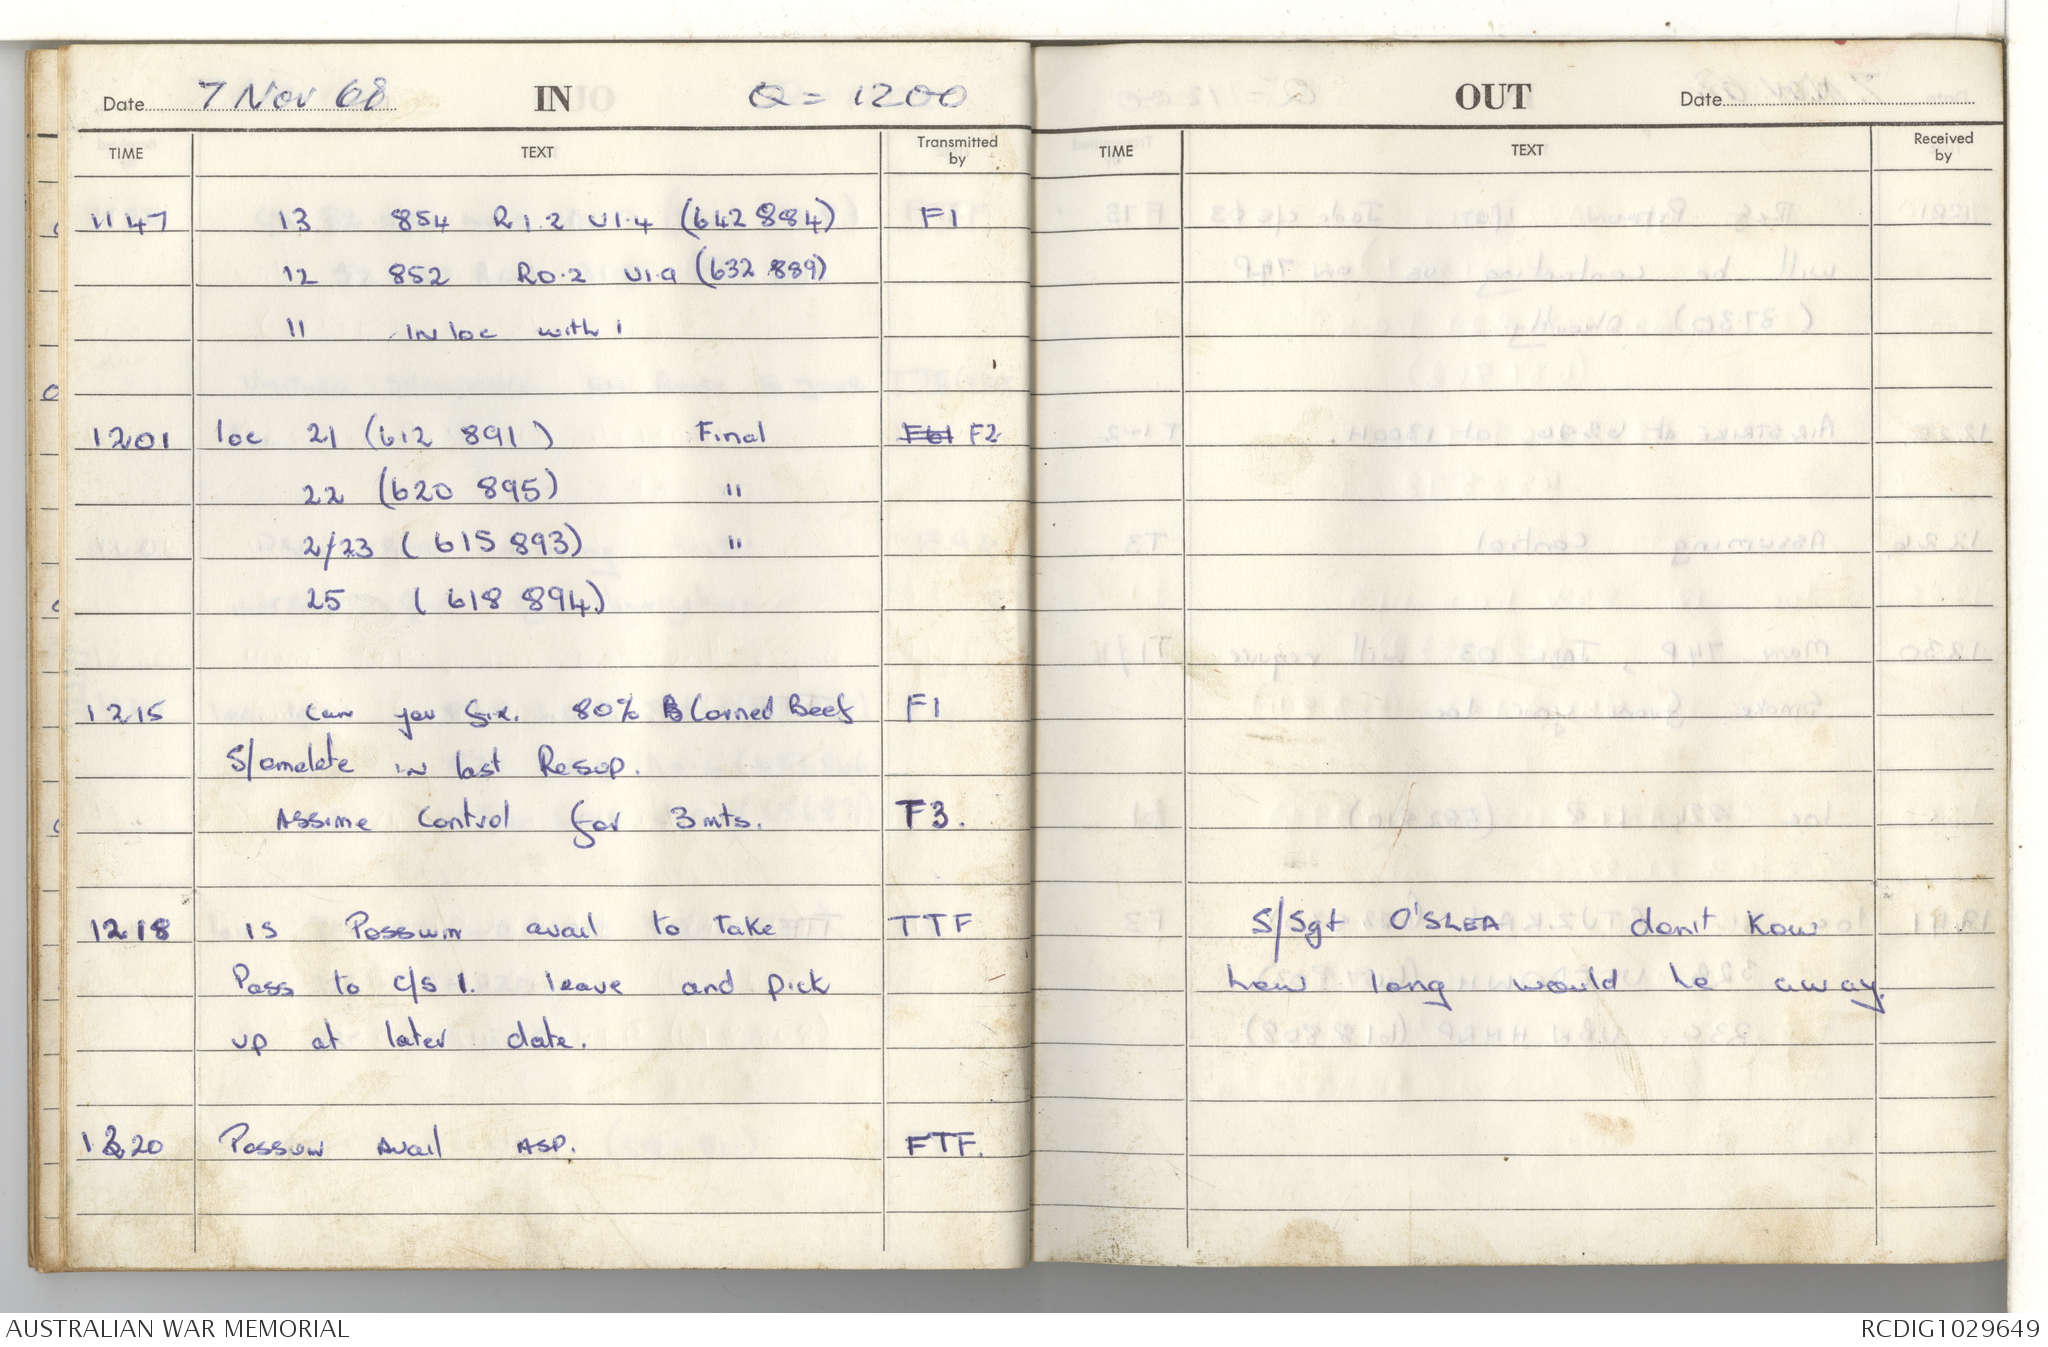 Date 7 Nov 68 IN Q = 1200
TIME TEXT Transmitted by
1147 13 854 R1.2 U1.4 (642 884) F1
12 852 R0.2 U1.9 (632 889)
11 IN loc with 1
1201 loc 21 (612 891) Final F61 F2
22 (620 895) "
2/23 (615 893) "
25 (618 894)
1215 can you fix. 80% B Corned Beef F1
S/omelete IN last Resup.
Assime Control for 3 mts. F3.
1218 is Possum avail to take TTF
Pass to c/s 1. leave and pick
up at later date.
1220 Possum Avail ASP. FTF.
OUT Date
TIME TEXT Received by
S/Sgt O'SLEA don't Kow
how long would he away.
AUSTRALIAN WAR MEMORIAL RCDIG1029649